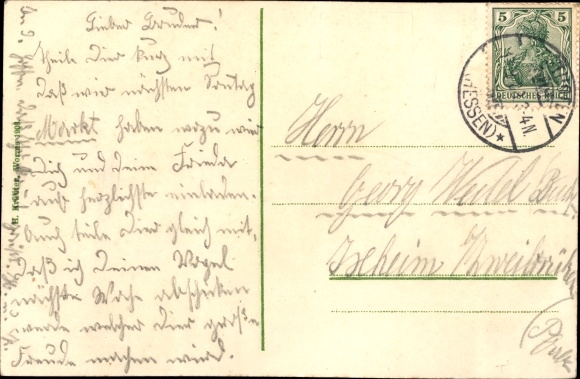 Lieber Bruder!
Theile Dier kurz mit
daß wir nächsten Sonntag
Markt haben wozu wir
Dich und Deine Frieda
auf herzlichste einladen.
Auch teile Dier gleich mit,
daß ich Deinen Vogel
nächste Woche abschicken
werde welcher Dier große
Freude machen wird.
H. Kreuter, Worms 1904
5 5
DEUTSCHES REICH
(HESSEN)
-4N
Herrn
Georg
Ixheim Zweibrücken
(Pfalz